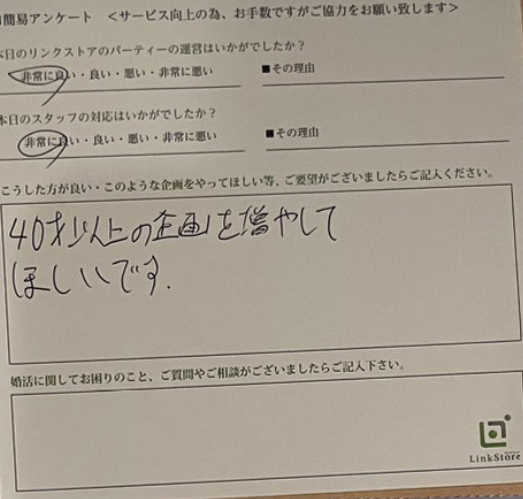 簡易アンケート <サービス向上の為、お手数ですがご協力をお願い致します>
本日のリンクストアのパーティーの運営はいかがでしたか?
非常に良い・良い・悪い・非常に悪い ■その理由
本日のスタッフの対応はいかがでしたか?
非常に良い・良い・悪い・非常に悪い ■その理由
こうした方が良い・このような企画をやってほしい等、ご要望がございましたらご記入ください。
40才以上の企画を増やして
ほしいです.
婚活に関してお困りのこと、ご質問やご相談がございましたらご記入下さい。
LinkStore